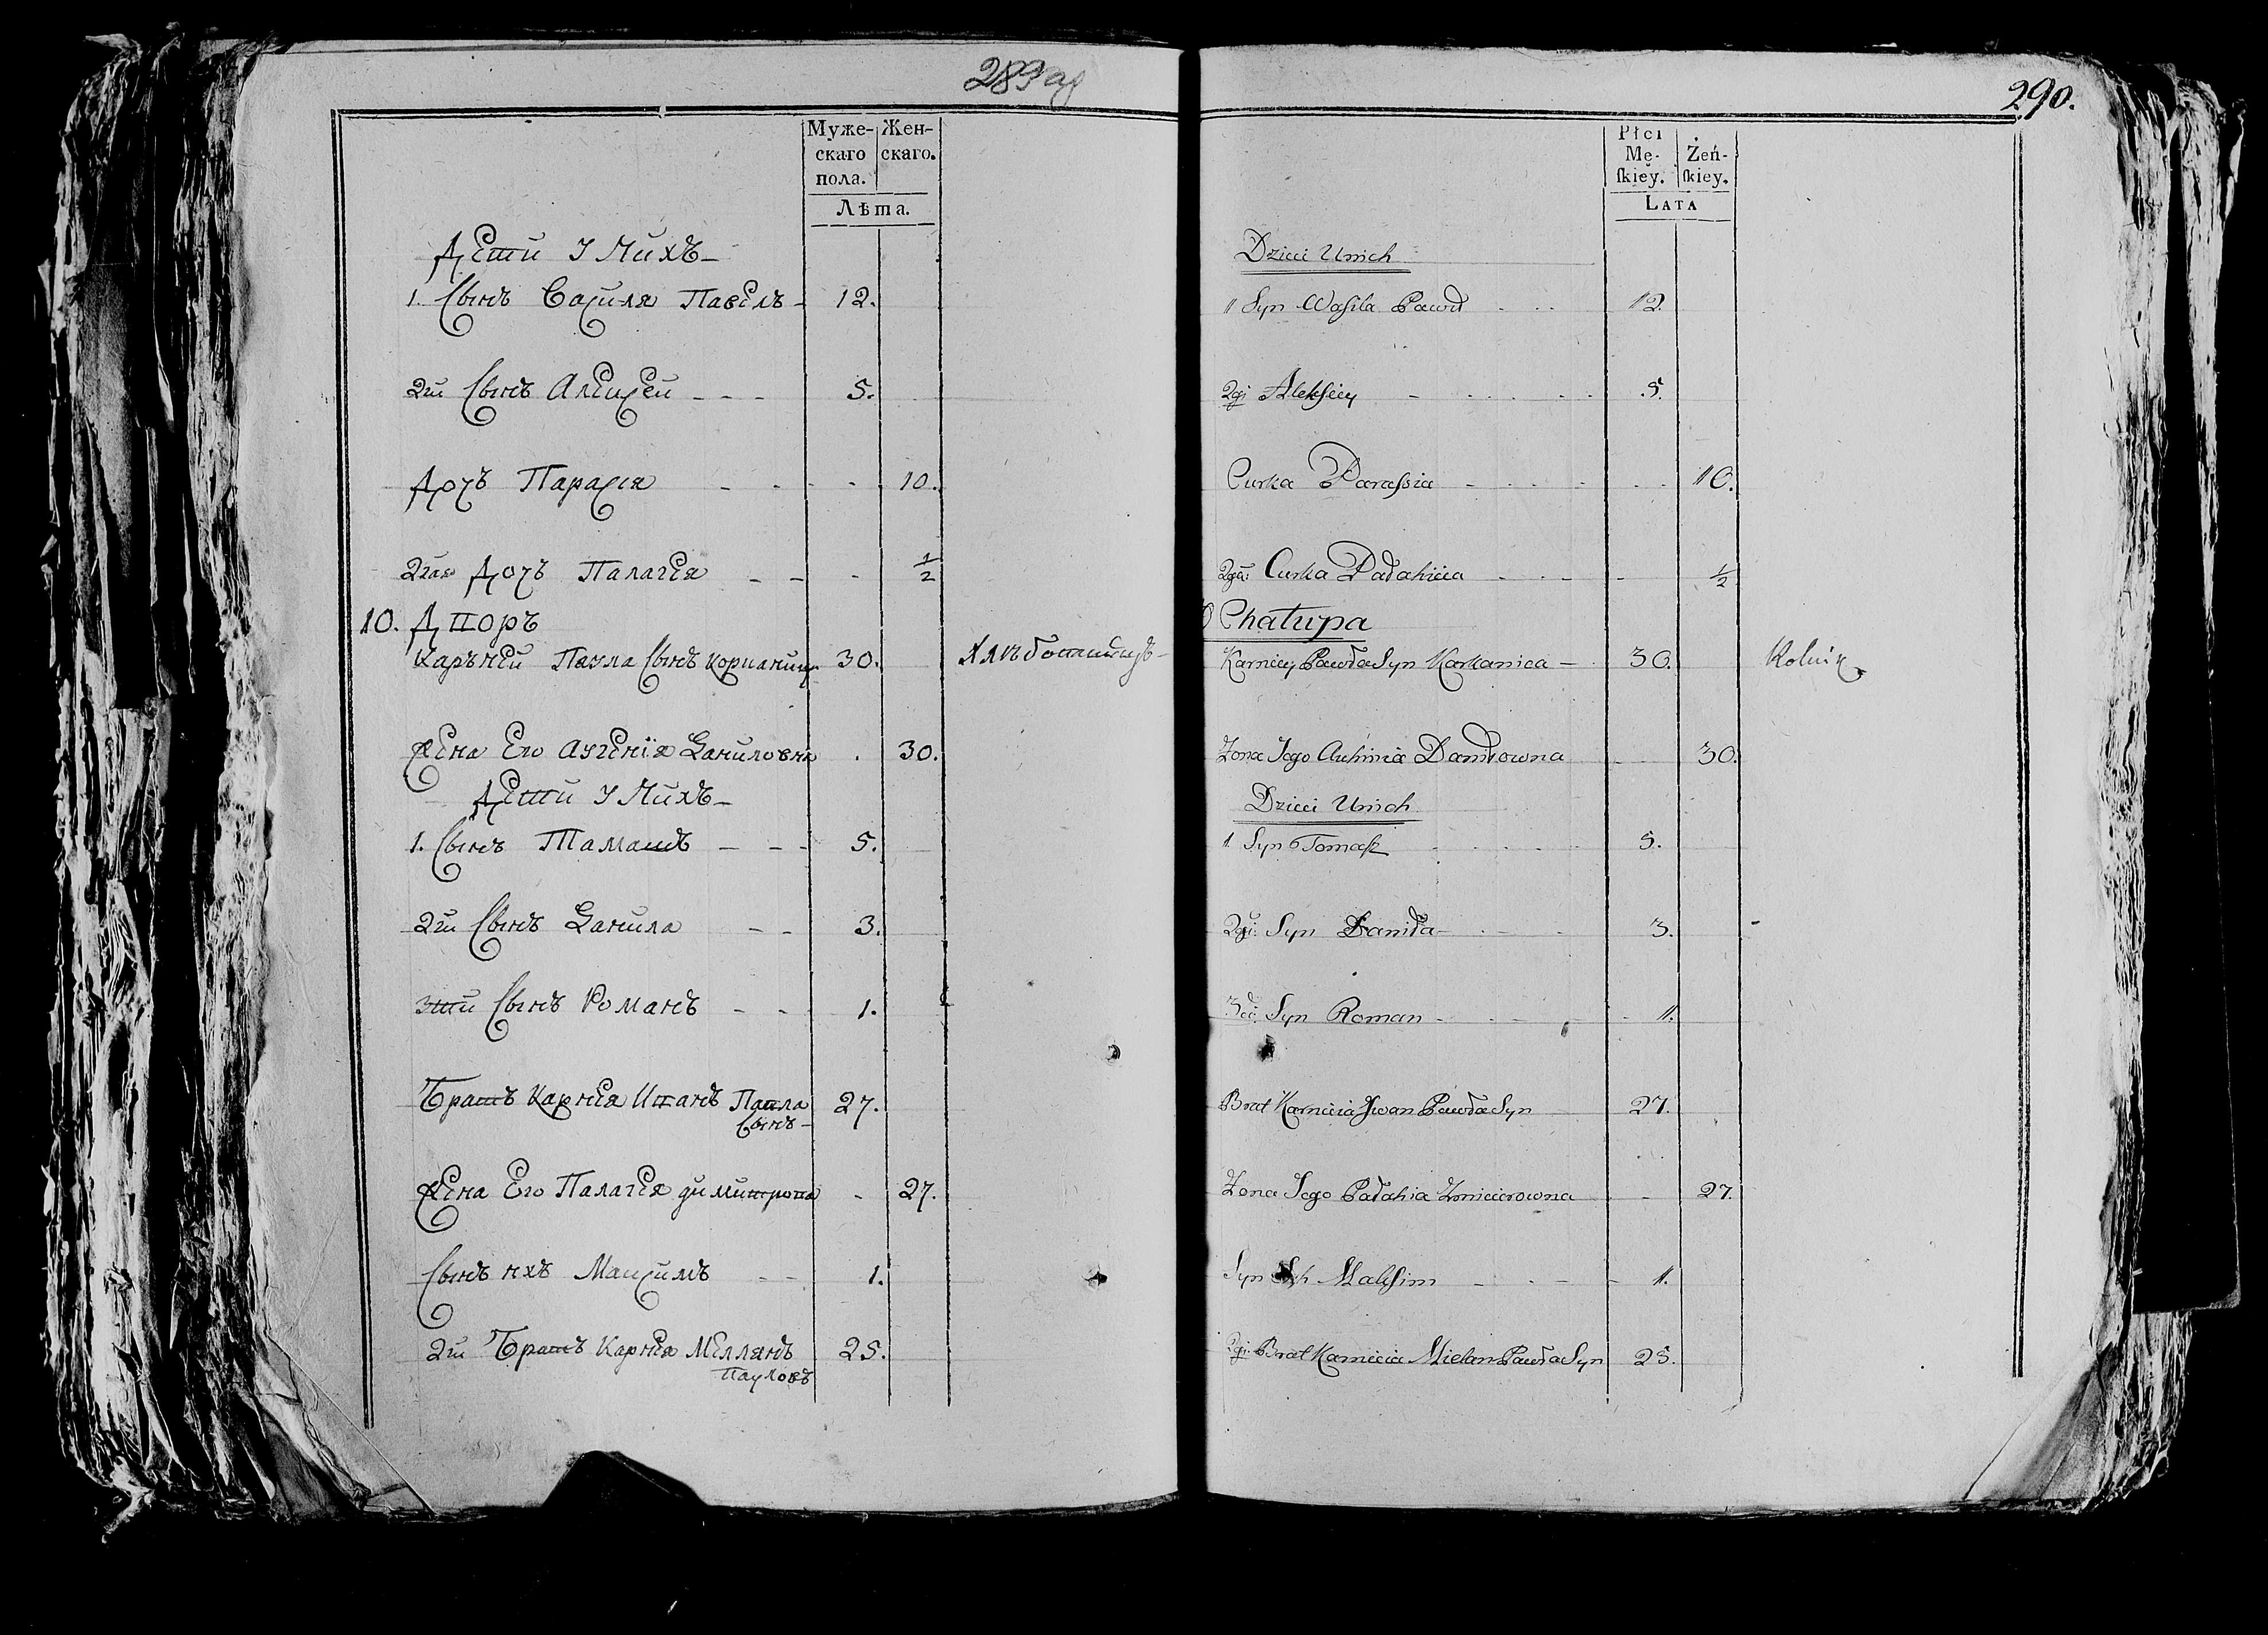 289 об
Муже- Жен-
скаго скаго.
пола.
Лѣта.
Дети У Нихъ
1. Сынъ Василя Павелъ 12.
2й Сынъ Алексей 5.
Дочъ Парася 10.
2гая Дочъ Палагея 1/2
10. Дворъ
Каръней Павла Сынъ Корканица 30.
Жена Его Аугенія Даниловна 30.
Дети У Нихъ
1. Сынъ Тамашъ 5.
2й Сынъ Данила 3.
3тй Сынъ Романъ 1.
Братъ Карнея Иванъ Павла 27.
Сынъ
Жена Его Палагея Димитрова 27.
Сынъ ихъ Максимъ 1.
2й Братъ Карнея Меллянъ 25.
Пауловъ
290.
Płci
Mę- Żeń-
ſkiey. ſkiey.
LATA
Dzieci Unich
1 Syn Wasila Paweł 12
2gi Aleksiey 5.
Curka Parassia 10.
2ga Curka Pałahieia 1/2
Chałupa
Karniey Pawła Syn Karkanica 30. Rolnik
Zona Jego Auhinia Daniłowna 30.
Dzieci Unich
1 Syn Tomasz 5.
2gi Syn Daniła 3.
3ci Syn Roman 1.
Brat Karnieia Jwan Pawła Syn 27.
Zona Jego Pałahia Zmicierowna 27.
Syn Jch Maksim 1.
2gi Brat Karnieia Mielan Pawła Syn 25.